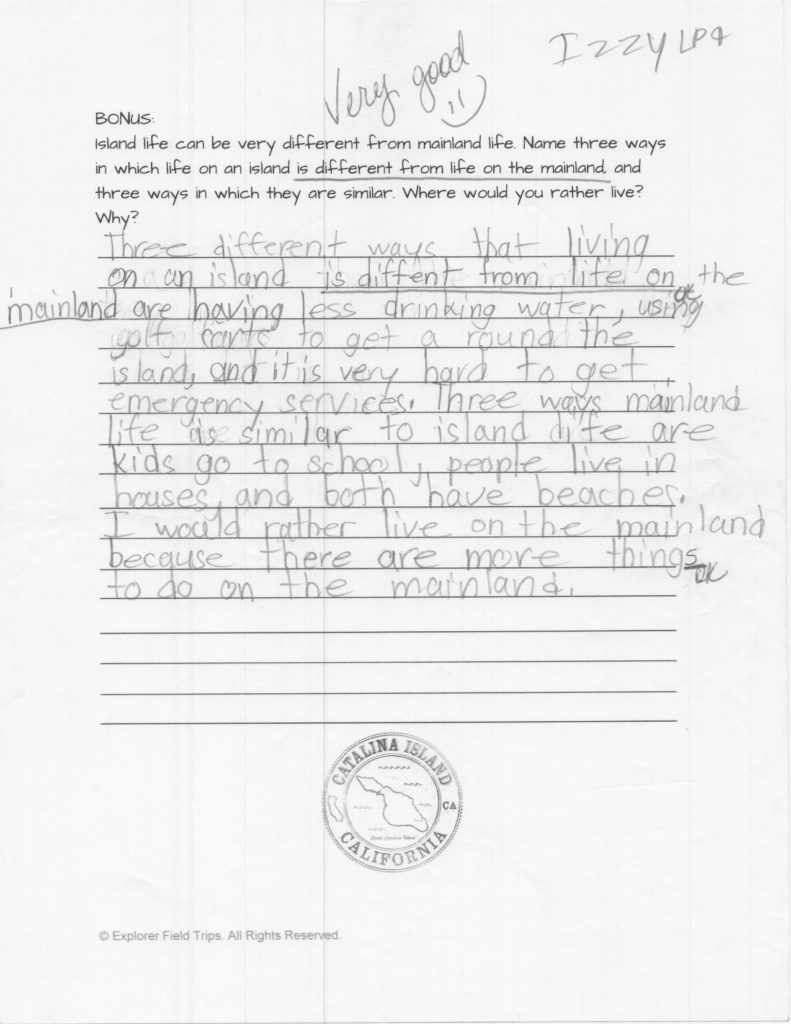 IZZY LP4
Very good
BONUS:
Island life can be very different from mainland life. Name three ways
in which life on an island is different from life on the mainland, and
three ways in which they are similar. Where would you rather live?
Why?
Three different ways that living
on an island is diffent from life on the
mainland are having less drinking water, using
golf carts to get a round the
island, and it is very hard to get
emergency services. Three ways mainland
life is similar to island life are
kids go to school, people live in
houses, and both have beaches.
I would rather live on the mainland
because there are more things
ok
to do on the mainland.
CATALINA ISLAND
CA
Santa Catalina Island
CALIFORNIA
© Explorer Field Trips. All Rights Reserved.